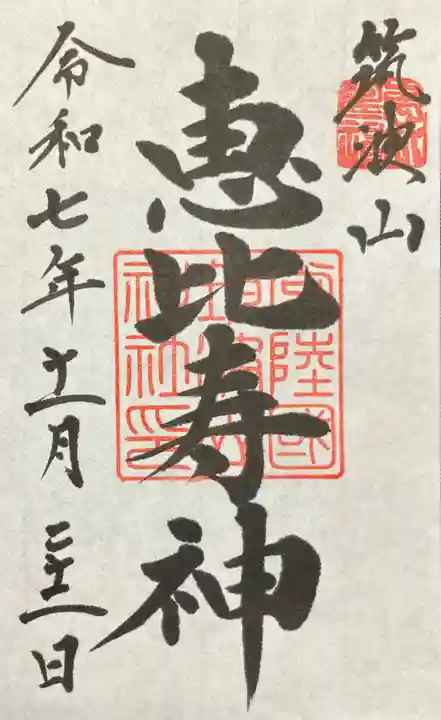 筑波山
恵比寿神
常陸國
神社印
令和七年十一月二十一日